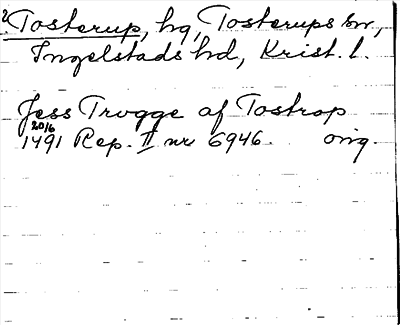 2. Tosterup, hg, Tosterups sn,
Ingelstads hd, Krist. l.
Jess Trugge af Tostrop
20/6
1491 Rep. II nr 6946. orig.